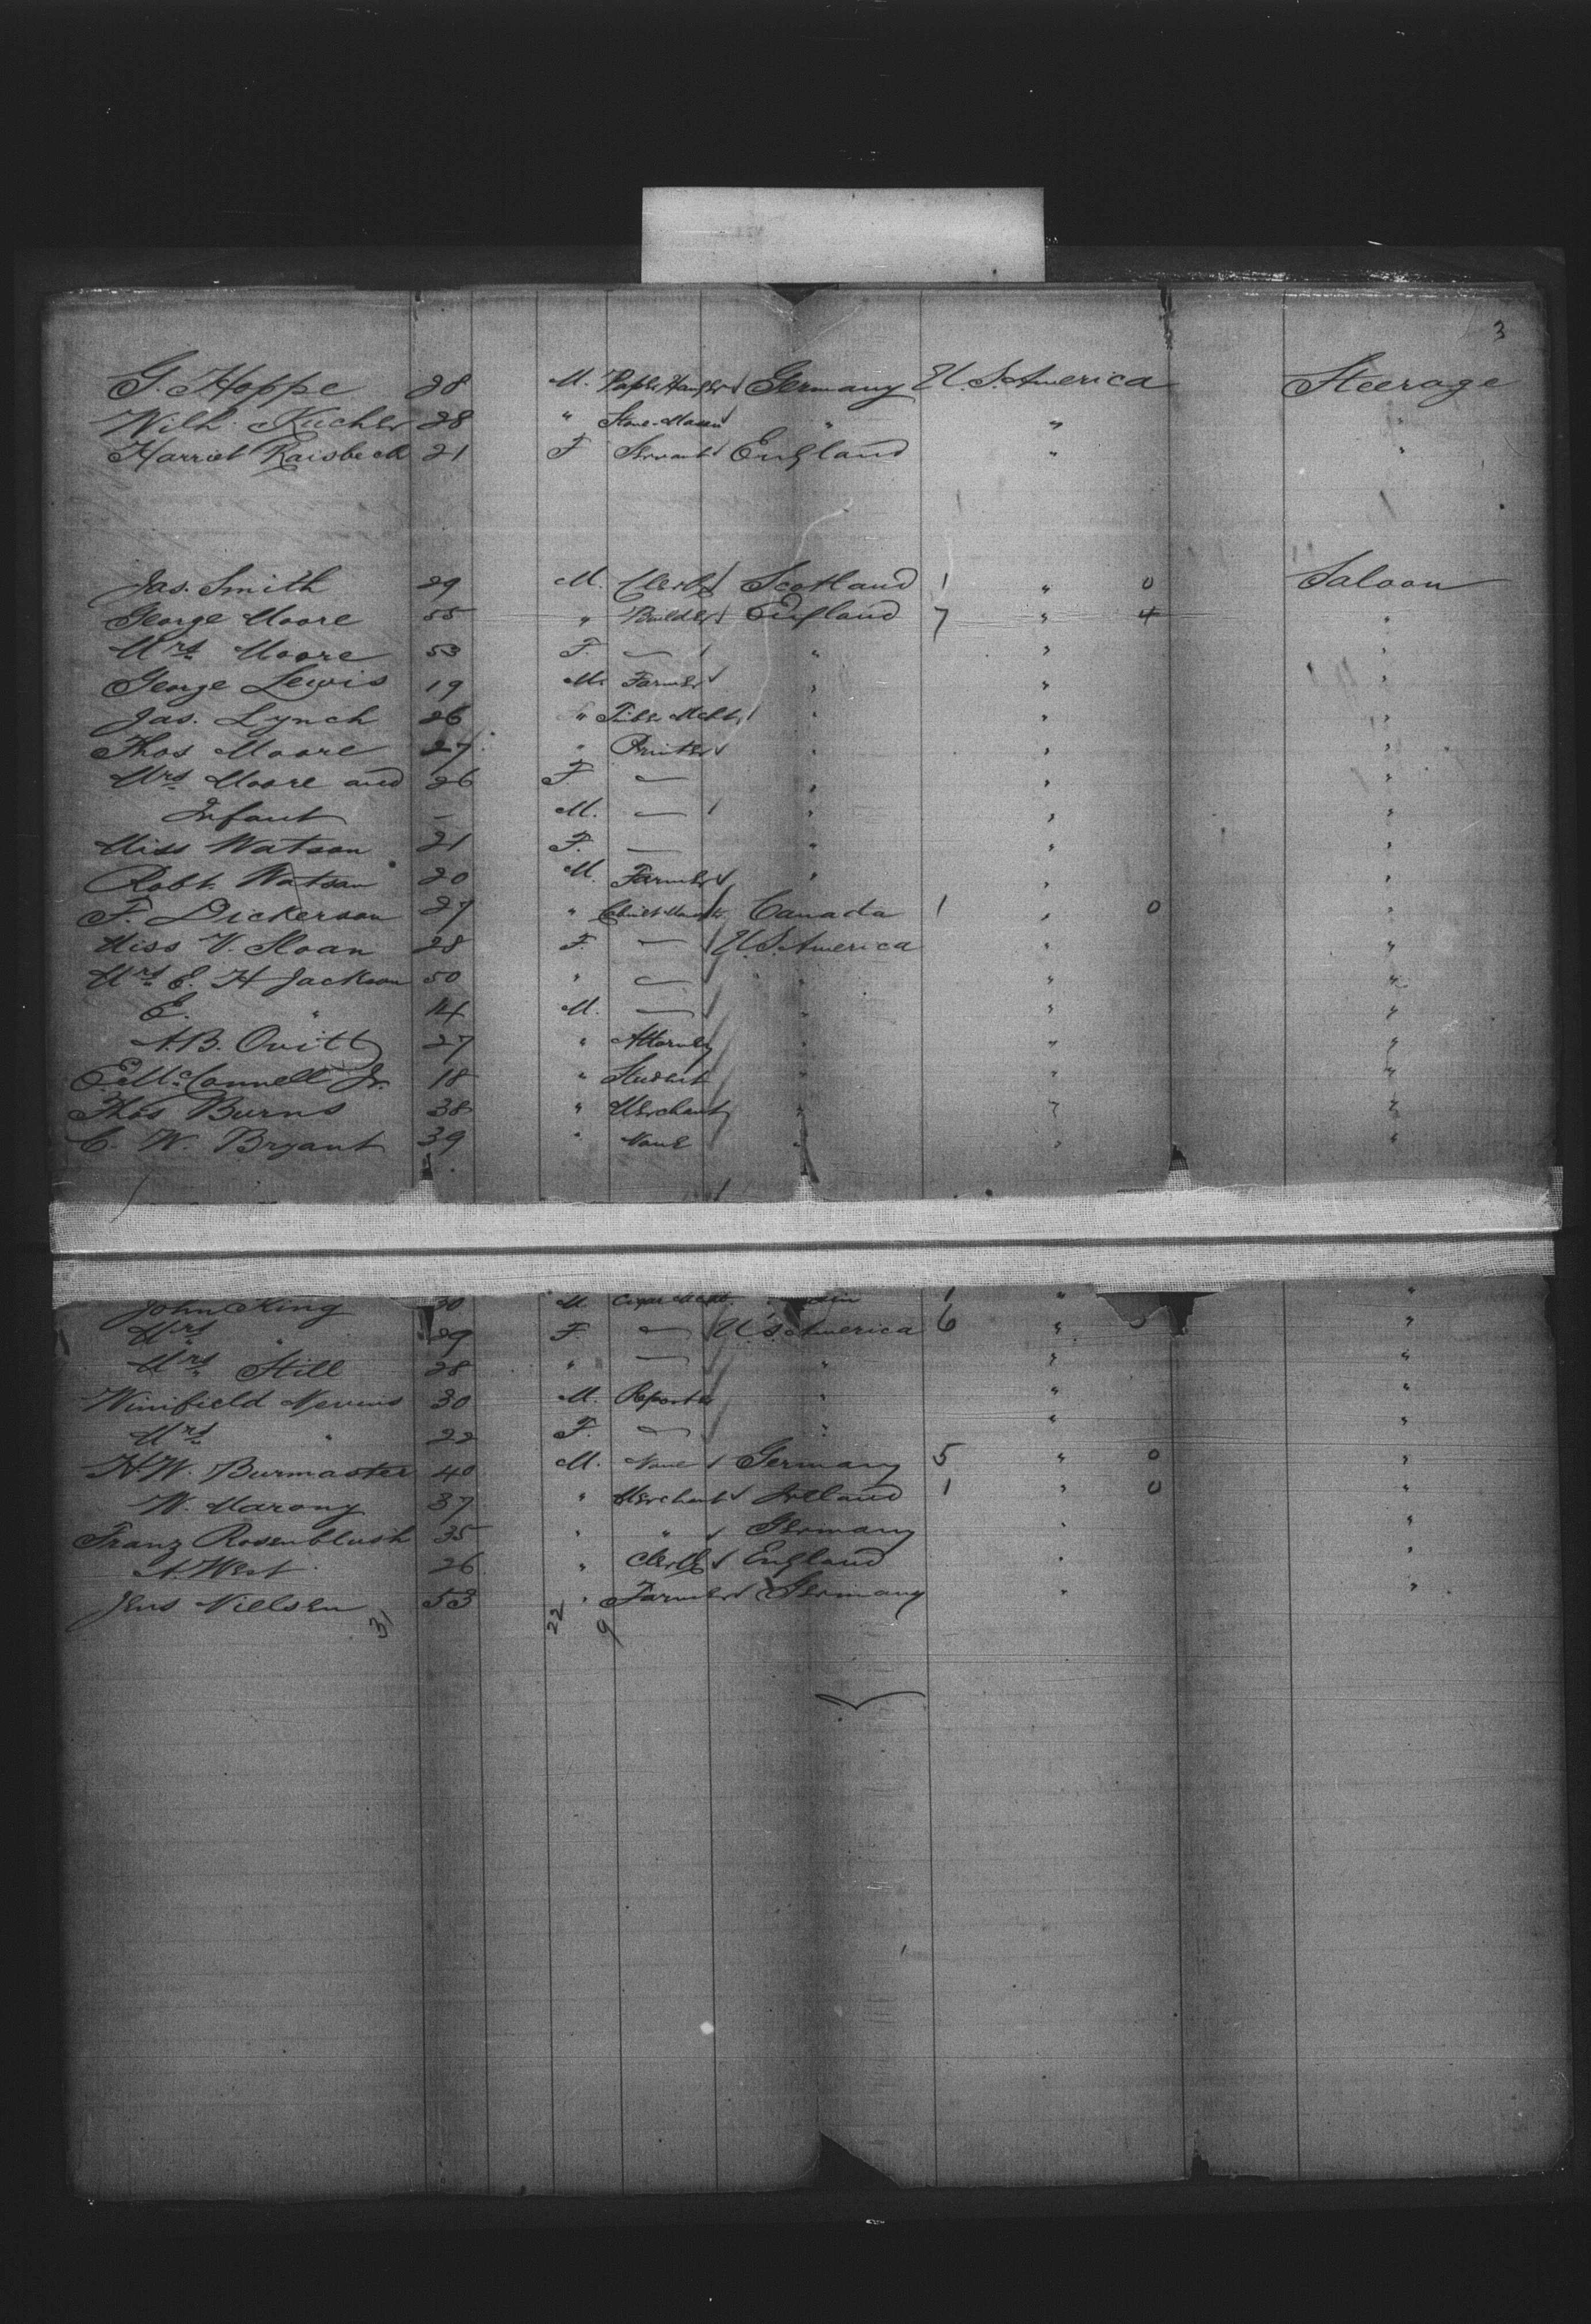 3
G. Hoppe 28 M. Paper Hanger Germany U. S. America Steerage
Wilh. Kucher 28 " Stone-Mason " " "
Harriet Raisbeck 21 F Servant England " "
Jas. Smith 29 M. Clerk Scotland 1 " 0 Saloon
George Moore 55 " Builder England 7 " 4 "
Mrs. Moore 53 F. — " " "
George Lewis 19 M. Farmer " " "
Jas. Lynch 26 " " " "
Thos Moore 27 " Printer " " "
Mrs Moore and 26 F. — " " "
Infant — M. — " " "
Miss Watson 21 F. — " " "
Robt. Watson 20 M. Farmer " " "
F. Dickerson 27 " Canada 1 " 0 "
Miss V. Sloan 28 F. — U. S. America " "
Mrs. E. H Jackson 50 " — " " "
E. " 14 M. — " " "
A. B. Ovitt 27 " Attorney " " "
E. McConnell Jr. 18 " Student " " "
Thos Burns 38 " Merchant " " "
C. W. Bryant 39 " None " " "
John King 30 M 1 " "
Mrs " 29 F. — U. S. America 6 " "
Mrs. Still 28 " — " " "
Winifield Nevins 30 M. Reporter " " "
Mrs. " 22 F. — " " "
H. W. Burmaster 40 M. None Germany 5 " 0 "
W. Marony 37 " Merchant Ireland 1 " 0 "
Franz Rosenblush 35 " " Germany " "
A. West 26 " Clerk England " "
Jens Nielsen 53 " Farmer Germany " "
31 22 9